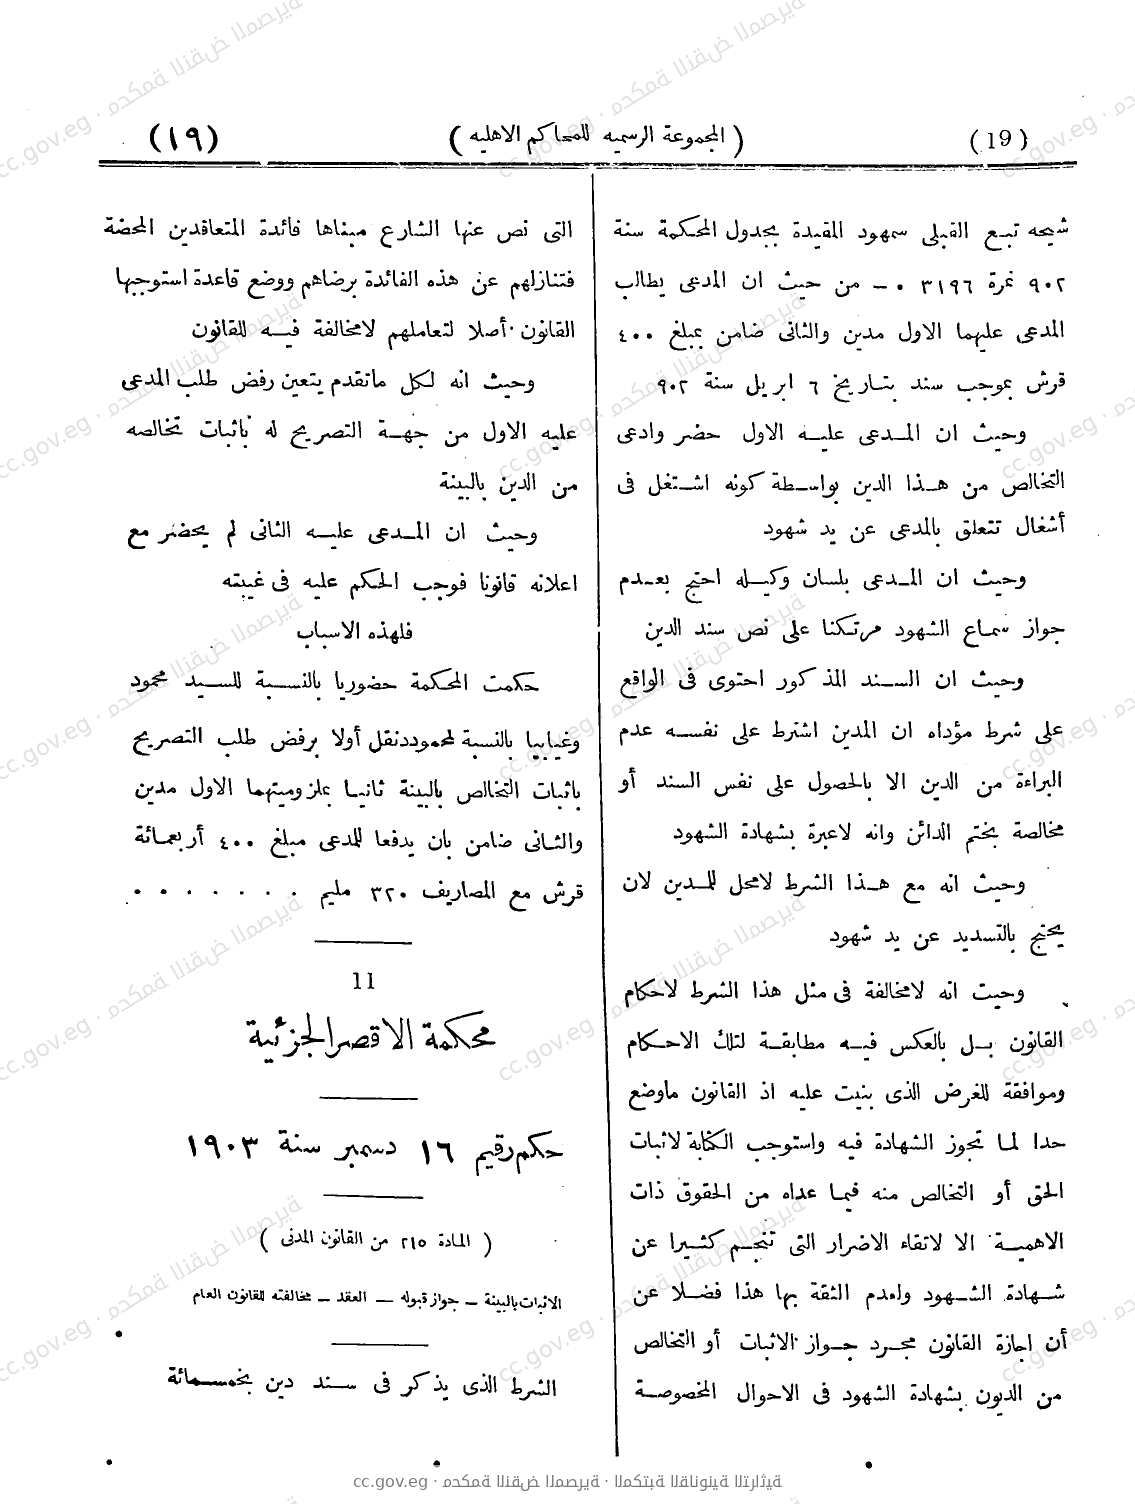 (19)
( المجموعة الرسميه للمحاكم الاهليه )
(١٩)
شيحه تبع القبلى سمهود المقيدة بجدول المحكمة سنة
٩٠٢ نمرة ٣١٩٦ ٠ — من حيث ان المدعى يطالب
المدعى عليهما الاول مدين والثانى ضامن بمبلغ ٤٠٠
قرش بموجب سند بتاريخ ٦ ابريل سنة ٩٠٢
وحيث ان المدعى عليه الاول حضر وادعى
التخالص من هذا الدين بواسطة كونه اشتغل فى
أشغال تتعلق بالمدعى عن يد شهود
وحيث ان المدعى بلسان وكيله احتج بعدم
جواز سماع الشهود مرتكنا على نص سند الدين
وحيث ان السند المذكور احتوى فى الواقع
على شرط مؤداه ان المدين اشترط على نفسه عدم
البراءة من الدين الا بالحصول على نفس السند أو
مخالصة بختم الدائن وانه لاعبرة بشهادة الشهود
وحيث انه مع هذا الشرط لامحل للمدين لان
يحتج بالتسديد عن يد شهود
وحيث انه لامخالفة فى مثل هذا الشرط لاحكام
القانون بل بالعكس فيه مطابقة لتلك الاحكام
وموافقة للغرض الذى بنيت عليه اذ القانون ماوضع
حدا لما تجوز الشهادة فيه واستوجب الكتابة لاثبات
الحق أو التخالص منه فيما عداه من الحقوق ذات
الاهمية الا لاتقاء الاضرار التى تنجم كثيرا عن
شهادة الشهود ولعدم الثقة بها هذا فضلا عن
أن اجازة القانون مجرد جواز الاثبات أو التخالص
من الديون بشهادة الشهود فى الاحوال المخصوصة
التى نص عنها الشارع مبناها فائدة المتعاقدين المحضة
فتنازلهم عن هذه الفائدة برضاهم ووضع قاعدة استوجبها
القانون أصلا لتعاملهم لامخالفة فيه للقانون
وحيث انه لكل ماتقدم يتعين رفض طلب المدعى
عليه الاول من جهة التصريح له باثبات تخالصه
من الدين بالبينة
وحيث ان المدعى عليه الثانى لم يحضر مع
اعلانه قانونا فوجب الحكم عليه فى غيبته
فلهذه الاسباب
حكمت المحكمة حضوريا بالنسبة للسيد محمود
وغيابيا بالنسبة لمحموددنقل أولا برفض طلب التصريح
باثبات التخالص بالبينة ثانيا بملزوميتهما الاول مدين
والثانى ضامن بان يدفعا للمدعى مبلغ ٤٠٠ أربعمائة
قرش مع المصاريف ٣٢٠ مليم . . . . . . .
11
محكمة الاقصر الجزئية
حكم رقيم ١٦ دسمبر سنة ١٩٠٣
( المادة ٢١٥ من القانون المدنى )
الاثبات بالبينة — جواز قبوله — العقد — مخالفته للقانون العام
الشرط الذى يذكر فى سند دين بخمسمائة
cc.gov.eg · محكمة النقض المصرية · المكتبة القانونية التراثية